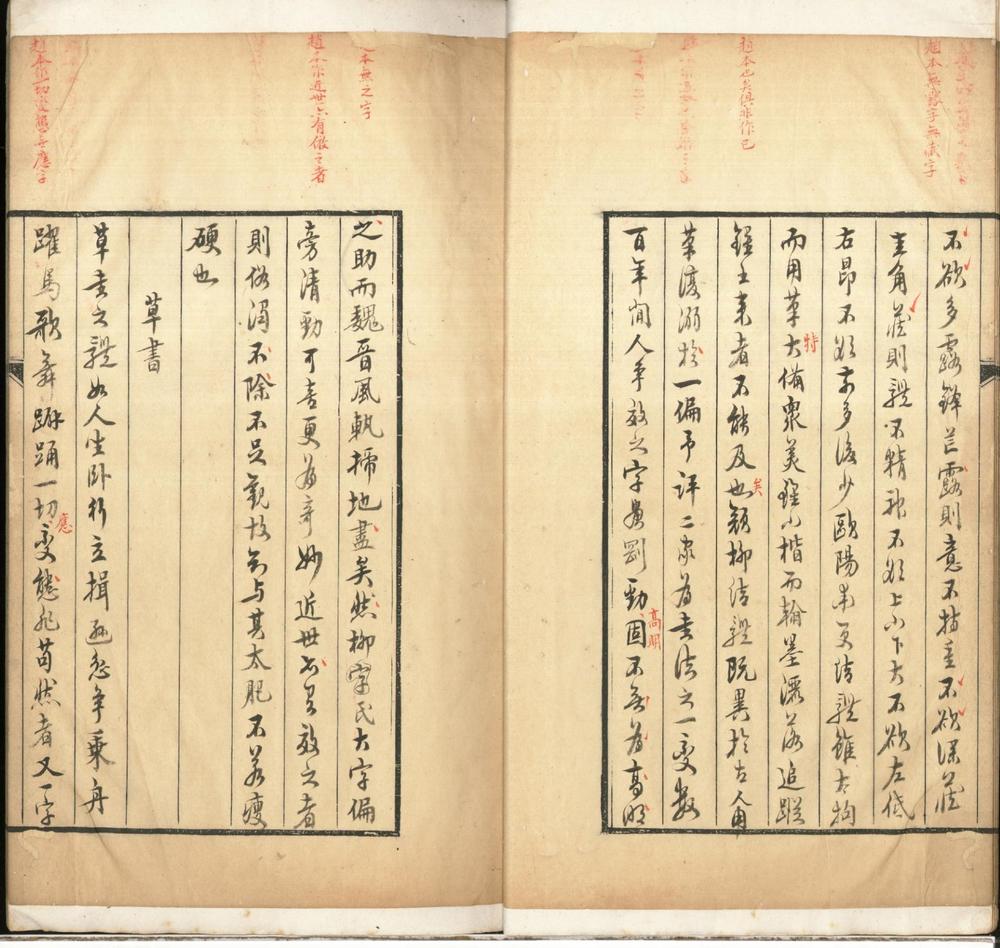 趙本無露字無藏字
趙本也矣俱非作已
不欲多露鋒芒露則意不持重不欲深藏
圭角藏則體不精神不欲上小下大不欲左低
右昂不欲前多後少歐陽率更結體雖太拘
而用筆大備衆美雖小楷而翰墨灑落追蹤
特
鍾王來者不能及也顏柳結體既異於古人用
矣
筆復溺於一偏予評二家為書法之一變數
百年間人爭效之字畫剛勁固不無為高明
高明
本無之字
趙本作近世亦有倣之者
趙本作一切變態無應字
之助而魏晉風軌掃地盡矣然柳字氏大字偏
旁清勁可喜更為奇妙近世亦有效之者
則俗濁不除不足觀故知与其太肥不若瘦
硬也
草書
草書之體如人坐卧行立揖遜忿爭乘舟
躍馬歌舞躃踊一切變態非苟然者又一字
應